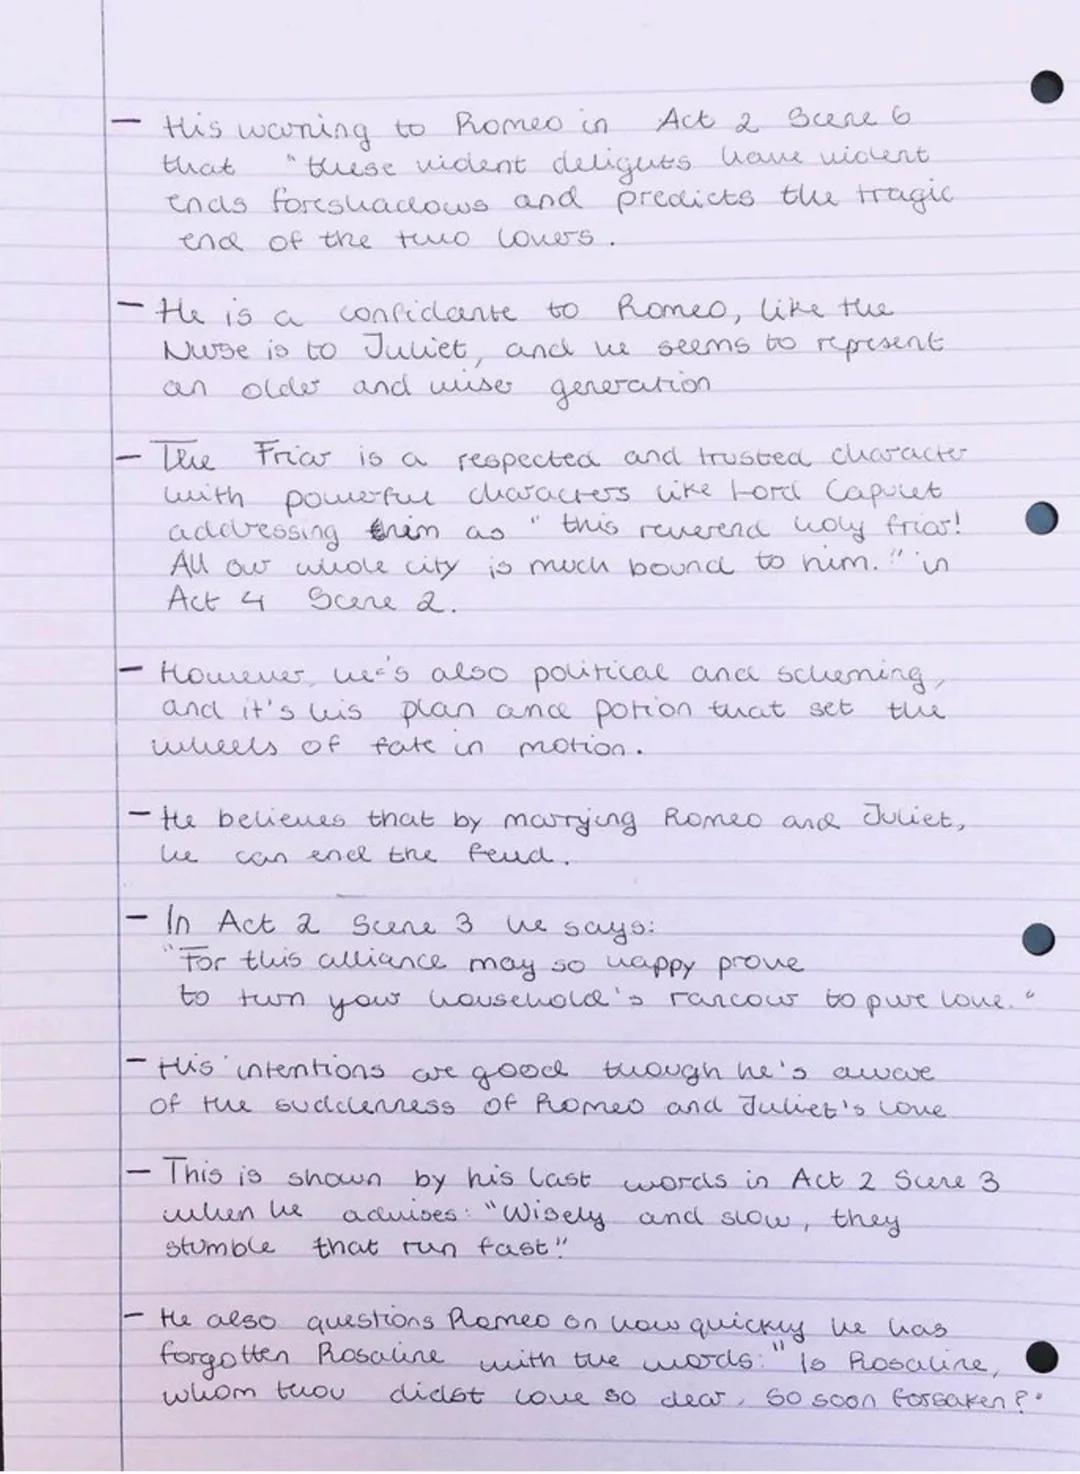 - His warning to Romeo in Act 2 Scene 6
that "these violent delights have violent
ends foreshadows and predicts the tragic
end of the two lovers.
- He is a confidante to Romeo, like the
Nurse is to Juliet, and he seems to represent
an older and wiser generation
- The Friar is a respected and trusted character
with powerful characters like Lord Capulet
addressing him as "this reverend holy friar!
All our whole city is much bound to him." in
Act 4 Scene 2.
- However, he's also political and scheming,
and it's his plan and potion that set the
wheels of fate in motion.
- He believes that by marrying Romeo and Juliet,
he can end the feud.
- In Act 2 Scene 3 he says:
"For this alliance may so happy prove
to turn your household's rancour to pure love."
- His intentions are good though he's aware
of the suddenness of Romeo and Juliet's love
- This is shown by his last words in Act 2 Scene 3
when he advises: "Wisely and slow, they
stumble that run fast"
- He also questions Romeo on how quickly he has
forgotten Rosaline with the words: "Is Rosaline,
whom thou didst love so dear, so soon forsaken?"